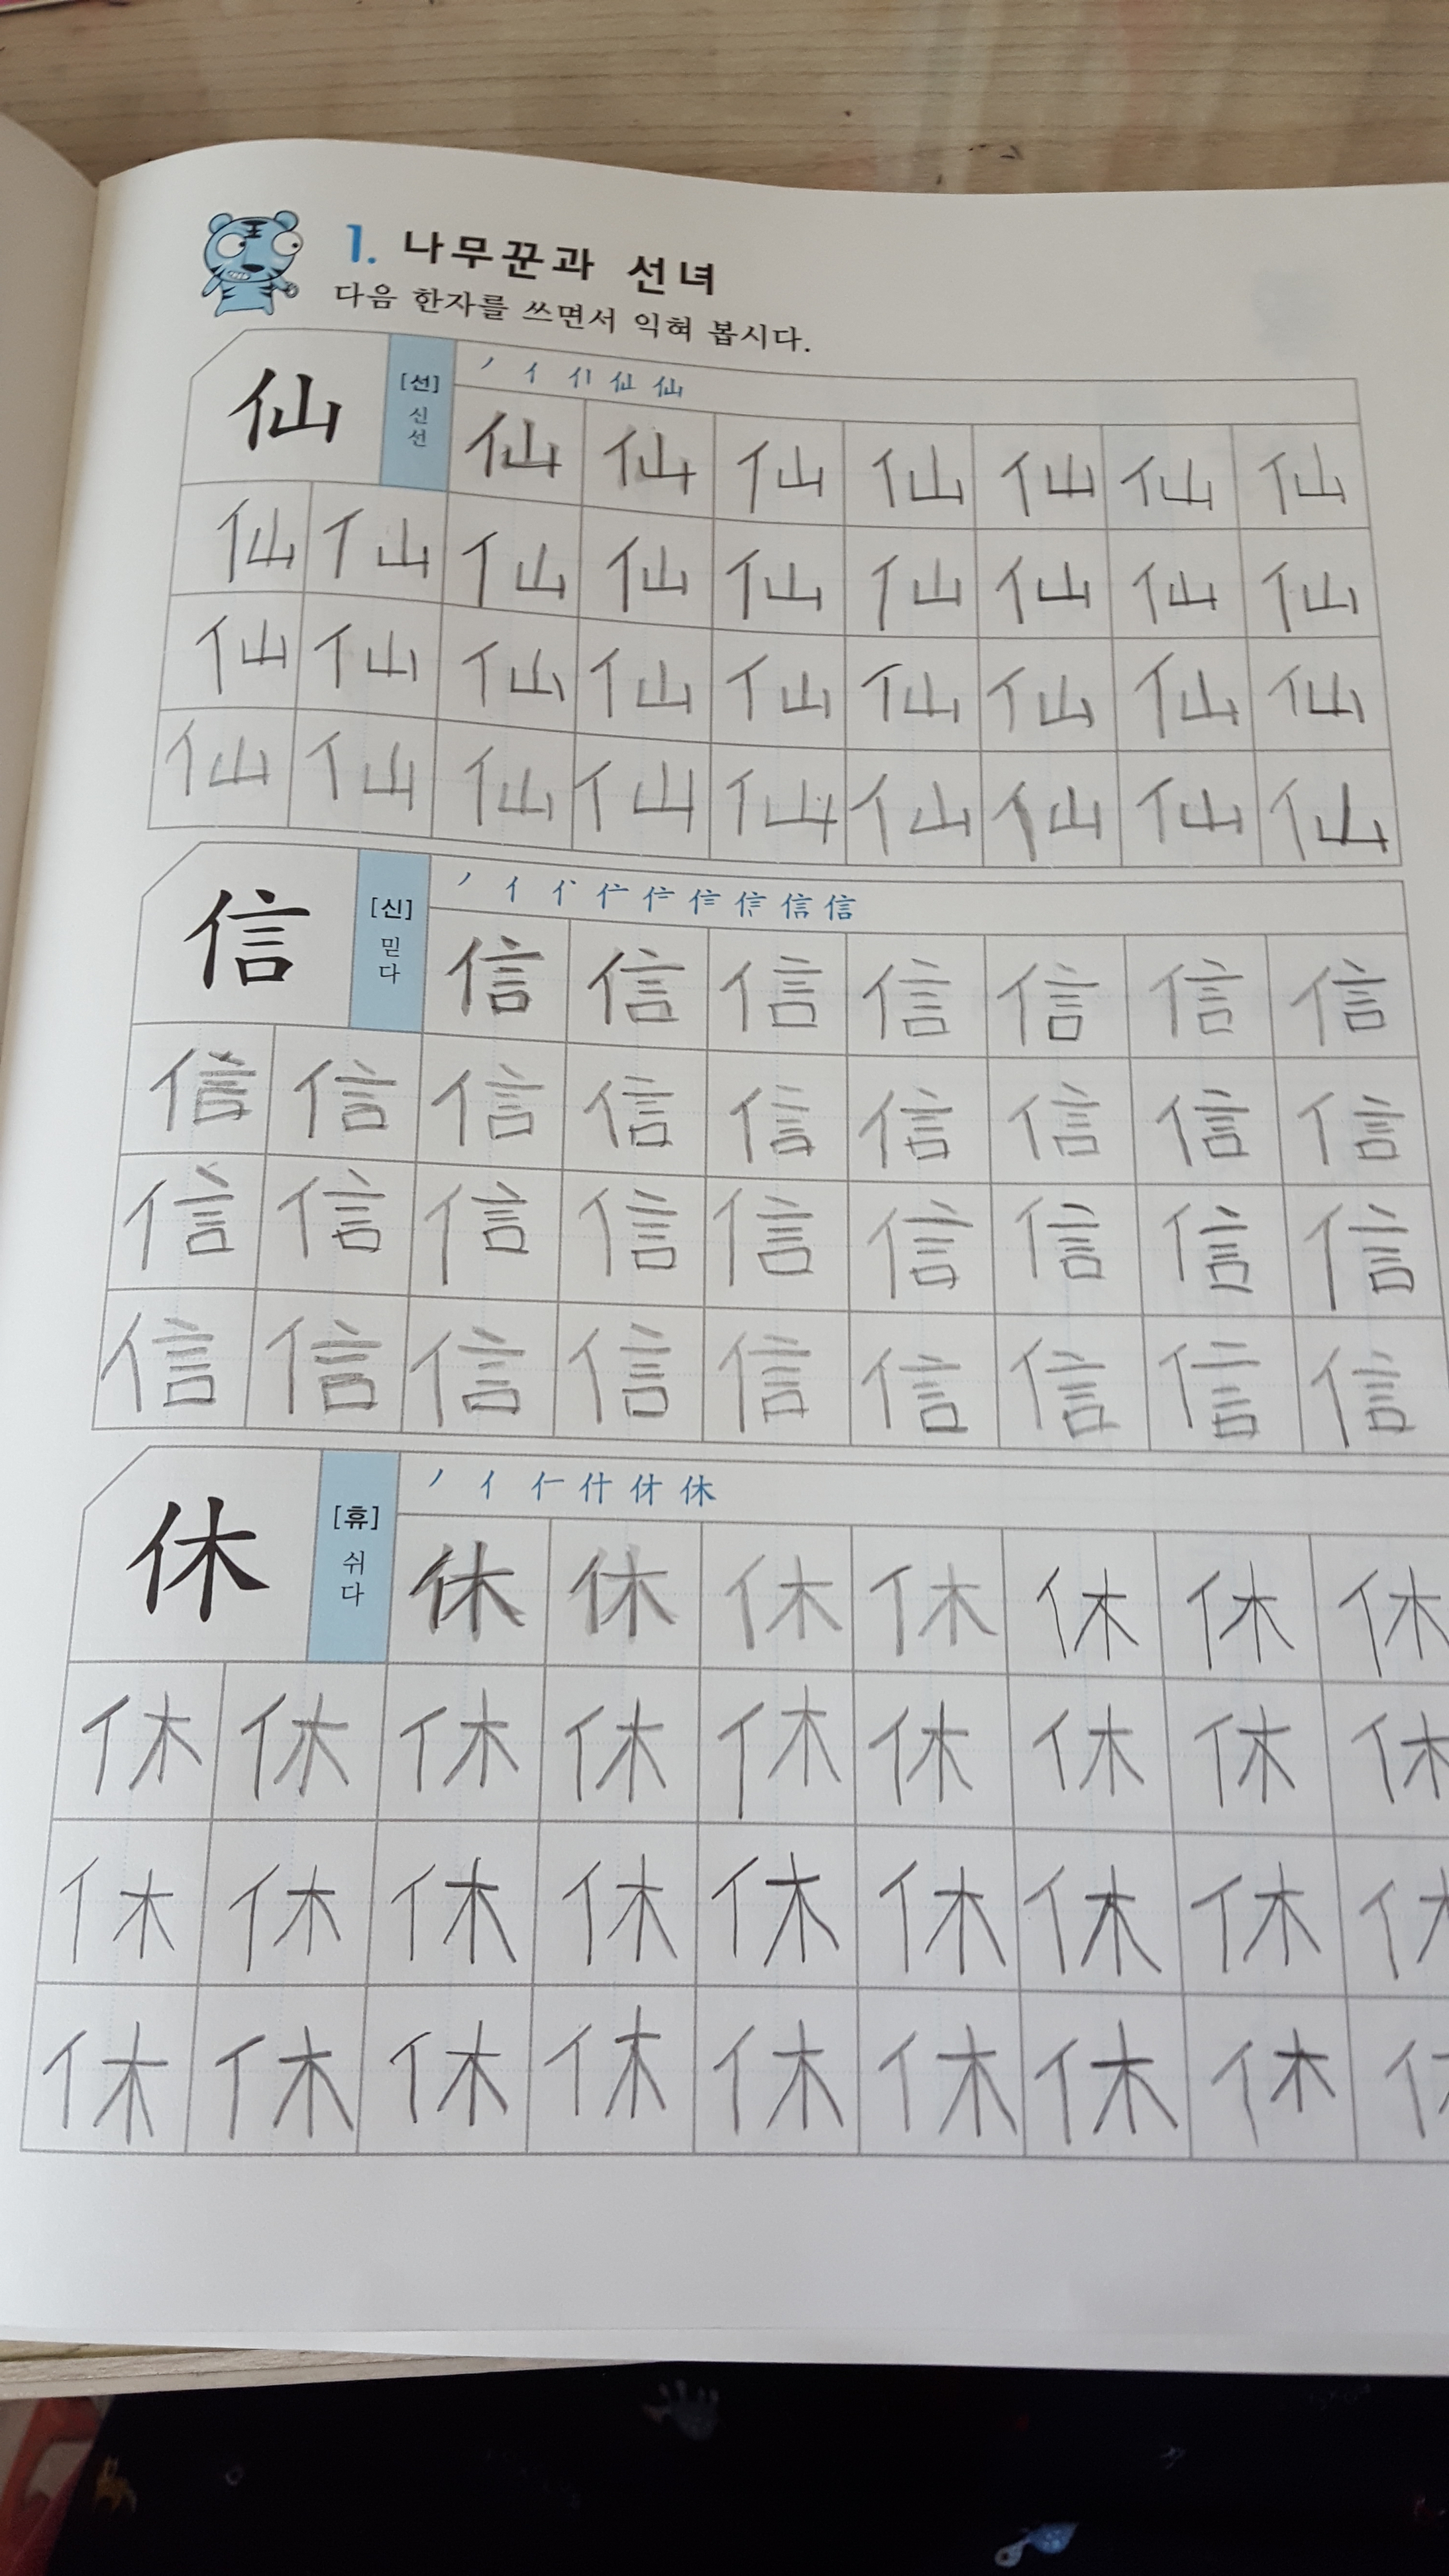 1. 나무꾼과 선녀
다음 한자를 쓰면서 익혀 봅시다.
仙 [선] 신선
丿 亻 仙 仙
仙 仙 仙 仙 仙 仙 仙
仙 仙 仙 仙 仙 仙 仙 仙 仙
仙 仙 仙 仙 仙 仙 仙 仙 仙
仙 仙 仙 仙 仙 仙 仙 仙 仙
信 [신] 믿다
丿 亻 信 信
信 信 信 信 信 信 信
信 信 信 信 信 信 信 信 信
信 信 信 信 信 信 信 信 信
信 信 信 信 信 信 信 信 信
休 [휴] 쉬다
丿 亻 什 休 休
休 休 休 休 休 休 休
休 休 休 休 休 休 休 休 休
休 休 休 休 休 休 休 休
休 休 休 休 休 休 休 休